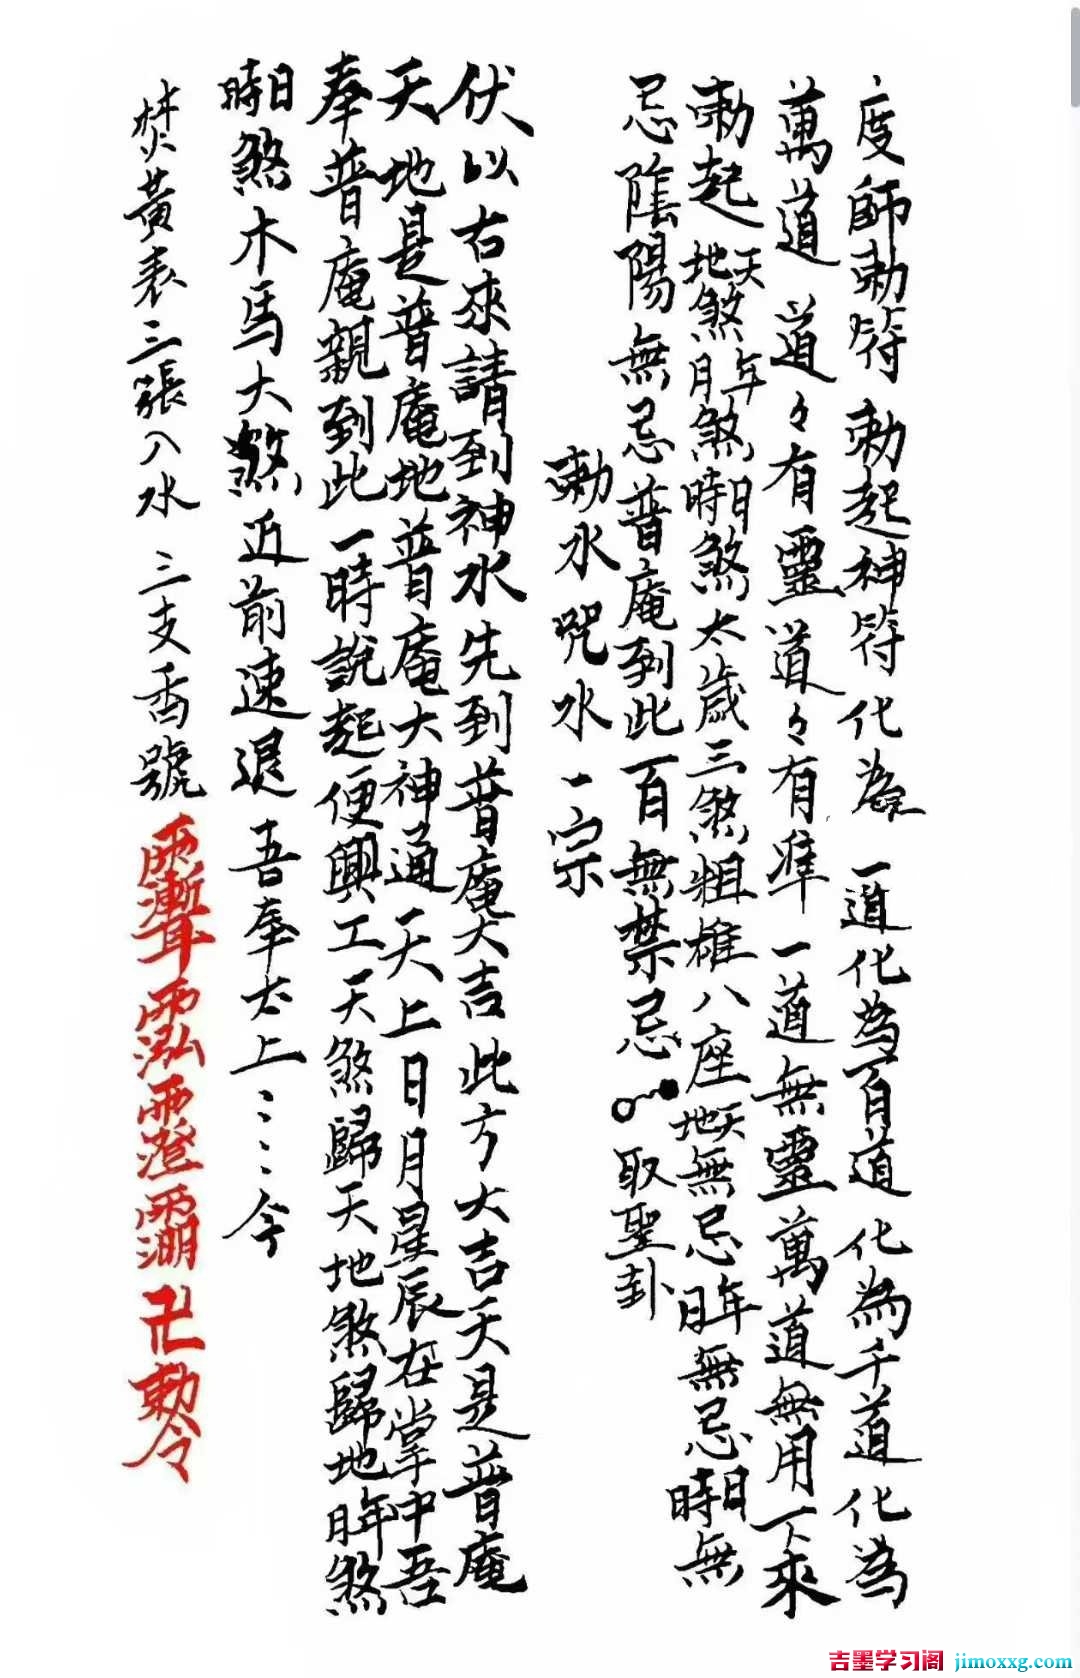 度師勅符勅起神符化為一道化為百道化為千道化為
萬道道々有靈道々有準一道無靈萬道無用下來
勅起天地煞年月煞日時煞太歲三煞粗雄八座天地無忌年月無忌日時無
忌陰陽無忌普庵到此百無禁忌取聖卦
勅水咒水一宗
伏以右來請到神水先到普庵大吉此方大吉天是普庵
天地是普庵地普庵大神通天上日月星辰在掌中吾
奉普庵親到此一時說起便興工天煞歸天地煞歸地年月煞
日時煞木馬大煞近前速退吾奉太上〻〻令
焚黃表三張入水三支香號卍勅令
吉墨学习阁 jimoxxg.com